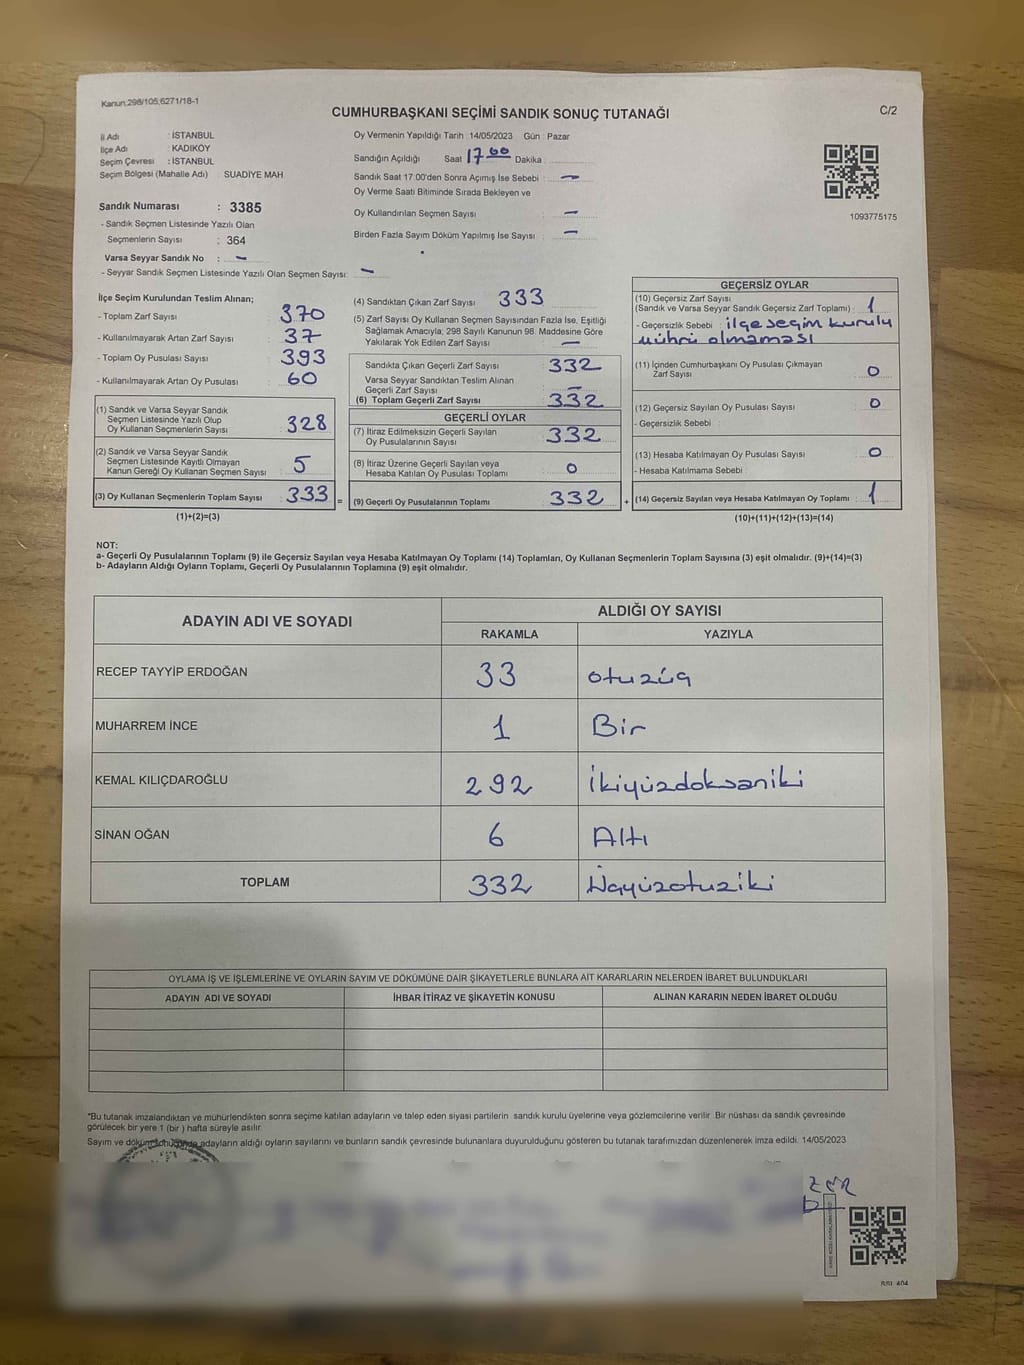 Kanun:298/105,6271/18-1
CUMHURBAŞKANI SEÇİMİ SANDIK SONUÇ TUTANAĞI
C/2
İl Adı : İSTANBUL
İlçe Adı : KADIKÖY
Seçim Çevresi : İSTANBUL
Seçim Bölgesi (Mahalle Adı) : SUADİYE MAH
Sandık Numarası : 3385
- Sandık Seçmen Listesinde Yazılı Olan
Seçmenlerin Sayısı : 364
Varsa Seyyar Sandık No : -
- Seyyar Sandık Seçmen Listesinde Yazılı Olan Seçmen Sayısı: -
Oy Vermenin Yapıldığı Tarih :14/05/2023 Gün : Pazar
Sandığın Açıldığı Saat 17 00 Dakika
Sandık Saat 17:00'den Sonra Açımış İse Sebebi : -
Oy Verme Saati Bitiminde Sırada Bekleyen ve
Oy Kullandırılan Seçmen Sayısı : -
Birden Fazla Sayım Döküm Yapılmış İse Sayısı : -
1093775175
İlçe Seçim Kurulundan Teslim Alınan;
- Toplam Zarf Sayısı : 370
- Kullanılmayarak Artan Zarf Sayısı : 37
- Toplam Oy Pusulası Sayısı : 393
- Kullanılmayarak Artan Oy Pusulası : 60
(1) Sandık ve Varsa Seyyar Sandık
Seçmen Listesinde Yazılı Olup
Oy Kullanan Seçmenlerin Sayısı : 328
(2) Sandık ve Varsa Seyyar Sandık
Seçmen Listesinde Kayıtlı Olmayan
Kanun Gereği Oy Kullanan Seçmen Sayısı : 5
(3) Oy Kullanan Seçmenlerin Toplam Sayısı : 333 =
(1)+(2)=(3)
(4) Sandıktan Çıkan Zarf Sayısı : 333
(5) Zarf Sayısı Oy Kullanan Seçmen Sayısından Fazla İse, Eşitliği
Sağlamak Amacıyla; 298 Sayılı Kanunun 98. Maddesine Göre
Yakılarak Yok Edilen Zarf Sayısı : -
Sandıkta Çıkan Geçerli Zarf Sayısı : 332
Varsa Seyyar Sandıktan Teslim Alınan
Geçerli Zarf Sayısı : -
(6) Toplam Geçerli Zarf Sayısı : 332
GEÇERLİ OYLAR
(7) İtiraz Edilmeksizin Geçerli Sayılan
Oy Pusulalarının Sayısı : 332
(8) İtiraz Üzerine Geçerli Sayılan veya
Hesaba Katılan Oy Pusulası Toplamı : 0
(9) Geçerli Oy Pusulalarının Toplamı : 332 +
GEÇERSİZ OYLAR
(10) Geçersiz Zarf Sayısı
(Sandık ve Varsa Seyyar Sandık Geçersiz Zarf Toplamı) : 1
- Geçersizlik Sebebi : ilçe seçim kurulu
mührü olmaması
(11) İçinden Cumhurbaşkanı Oy Pusulası Çıkmayan
Zarf Sayısı : 0
(12) Geçersiz Sayılan Oy Pusulası Sayısı : 0
- Geçersizlik Sebebi :
(13) Hesaba Katılmayan Oy Pusulası Sayısı : 0
- Hesaba Katılmama Sebebi :
(14) Geçersiz Sayılan veya Hesaba Katılmayan Oy Toplamı : 1
(10)+(11)+(12)+(13)=(14)
NOT:
a- Geçerli Oy Pusulalarının Toplamı (9) ile Geçersiz Sayılan veya Hesaba Katılmayan Oy Toplamı (14) Toplamları, Oy Kullanan Seçmenlerin Toplam Sayısına (3) eşit olmalıdır. (9)+(14)=(3)
b- Adayların Aldığı Oyların Toplamı, Geçerli Oy Pusulalarının Toplamına (9) eşit olmalıdır.
ADAYIN ADI VE SOYADI
ALDIĞI OY SAYISI
RAKAMLA YAZIYLA
RECEP TAYYİP ERDOĞAN 33 otuzüç
MUHARREM İNCE 1 Bir
KEMAL KILIÇDAROĞLU 292 İkiyüzdoksaniki
SİNAN OĞAN 6 Altı
TOPLAM 332 Üçyüzotuziki
OYLAMA İŞ VE İŞLEMLERİNE VE OYLARIN SAYIM VE DÖKÜMÜNE DAİR ŞİKAYETLERLE BUNLARA AİT KARARLARIN NELERDEN İBARET BULUNDUKLARI
ADAYIN ADI VE SOYADI İHBAR İTİRAZ VE ŞİKAYETİN KONUSU ALINAN KARARIN NEDEN İBARET OLDUĞU
*Bu tutanak imzalandıktan ve mühürlendikten sonra seçime katılan adayların ve talep eden siyasi partilerin sandık kurulu üyelerine veya gözlemcilerine verilir. Bir nüshası da sandık çevresinde
görülecek bir yere 1 (bir ) hafta süreyle asılır.
Sayım ve döküm sonucunda adayların aldığı oyların sayılarını ve bunların sandık çevresinde bulunanlara duyurulduğunu gösteren bu tutanak tarafımızdan düzenlenerek imza edildi. 14/05/2023